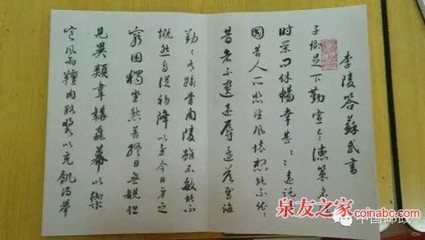 李陵答蘇武書
子卿足下勤宣令德策名清
時榮问休暢幸甚々々遠託異
國昔人所悲望風懷想能不依々
昔者不遺遠辱還答慰誨
勤々有踰骨肉陵雖不敏能不
慨然自從初降以至今日身之
窮困獨坐愁苦終日無覩但
見異類韋韝毳幕以禦
風雨羶肉酪漿以充飢渴舉
泉友之家
coinabc.com